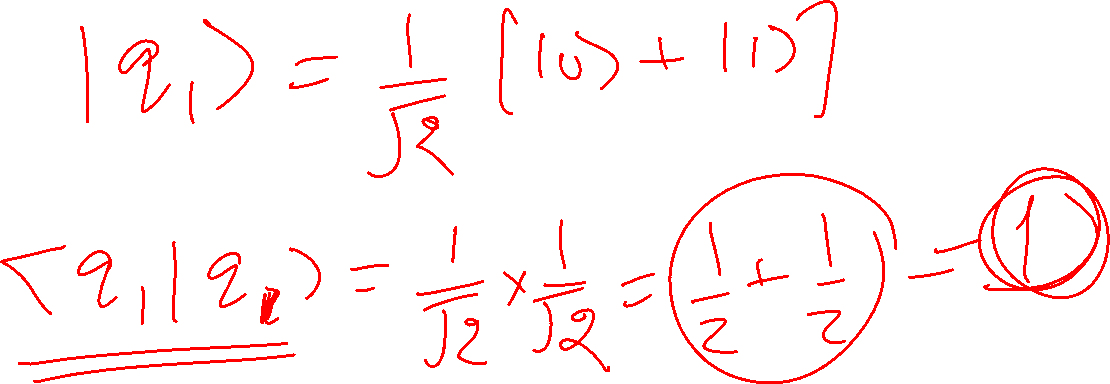 |q₁⟩ = 1/√2 [|0⟩ + |1⟩]
⟨q₁|q₁⟩ = 1/√2 × 1/√2 = 1/2 + 1/2 = 1